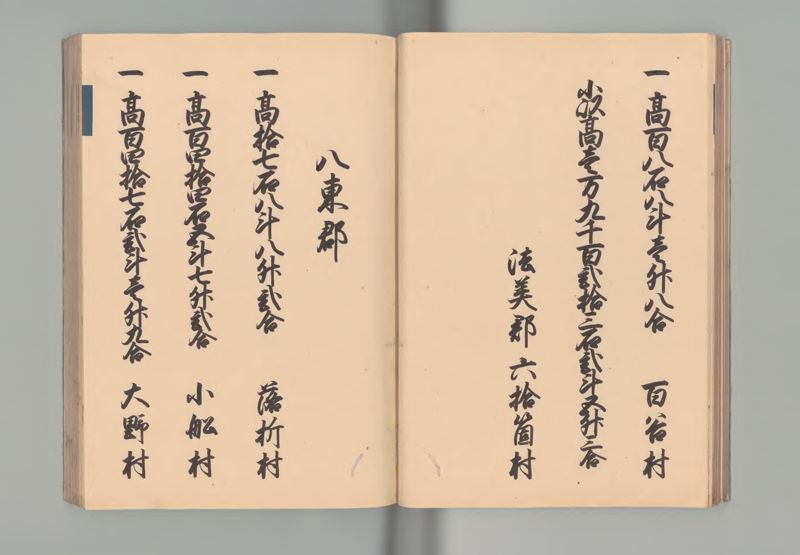 一 高百八石八斗壱升八合 百谷村
小以高壱万九千百弐拾三石弐斗五升三合
法美郡 六拾箇村
八東郡
一 高拾七石八斗八升弐合 落折村
一 高百四拾四石五斗七升弐合 小船村
一 高百四拾七石弐斗壱升九合 大野村